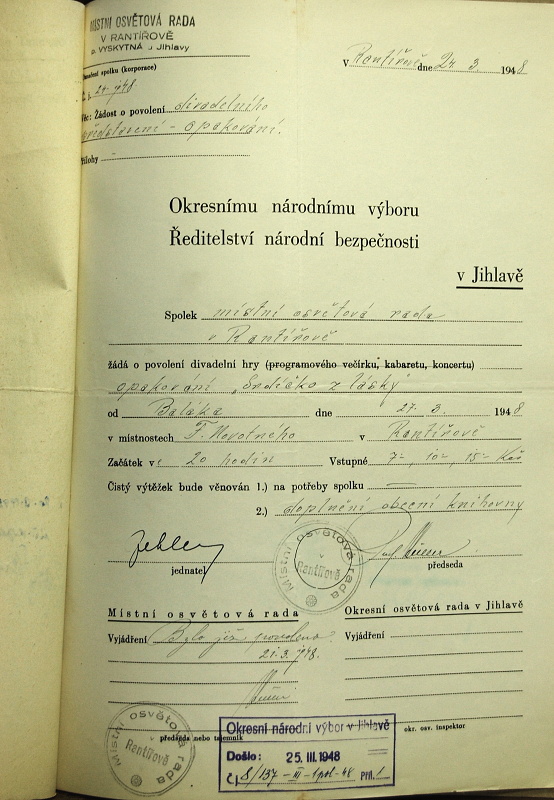 MÍSTNÍ OSVĚTOVÁ RADA
V RANTÍŘOVĚ
p. VYSKYTNÁ u Jihlavy
V Rantířově dne 24. 3. 1948
spolku (korporace)
24-
Věc: Žádost o povolení divadelního
představení - opakování.
Přílohy
Okresnímu národnímu výboru
Ředitelství národní bezpečnosti
v Jihlavě
Spolek místní osvětová rada
v Rantířově
žádá o povolení divadelní hry (programového večírku, kabaretu, koncertu)
opakování „Srdíčko z lásky"
od Baláka dne 27. 3. 1948
v místnostech F. Novotného v Rantířově
Začátek ve 20 hodin Vstupné 7-, 10-, 15- Kčs
Čistý výtěžek bude věnován 1.) na potřeby spolku —
2.) doplnění obecní knihovny
jednatel
předseda
Místní osvětová rada
Rantířově
Místní osvětová rada
Okresní osvětová rada v Jihlavě
Vyjádření Bylo již povoleno
21. 3. 1948.
Vyjádření:
předseda nebo tajemník
okr. osv. inspektor
Místní osvětová rada
Rantířově
Okresní národní výbor v Jihlavě
Došlo: 25. III. 1948
Čj. 8/137 - III - 1pol - 48 Příl. 1